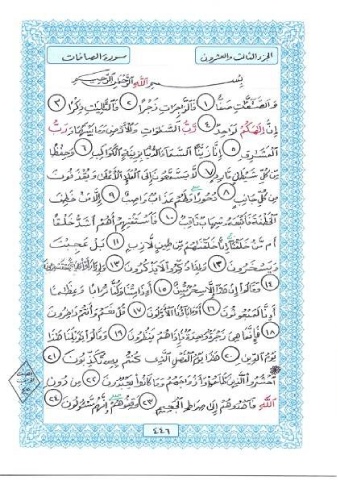 سورة الصافات
الجزء الثالث والعشرون
بسم الله الرحمن الرحيم
والصافات صفا ١ فالزاجرات زجرا ٢ فالتاليات ذكرا ٣
إن إلهكم لواحد ٤ رب السماوات والأرض وما بينهما ورب
المشارق ٥ إنا زينا السماء الدنيا بزينة الكواكب ٦ وحفظا
من كل شيطان مارد ٧ لا يسمعون إلى الملإ الأعلى ويقذفون
من كل جانب ٨ دحورا ولهم عذاب واصب ٩ إلا من خطف
الخطفة فأتبعه شهاب ثاقب ١٠ فاستفتهم أهم أشد خلقا
أم من خلقنا إنا خلقناهم من طين لازب ١١ بل عجبت
ويسخرون ١٢ وإذا ذكروا لا يذكرون ١٣ وإذا رأوا آية يستسخرون
١٤ وقالوا إن هذا إلا سحر مبين ١٥ أإذا متنا وكنا ترابا وعظاما
أإنا لمبعوثون ١٦ أوآباؤنا الأولون ١٧ قل نعم وأنتم داخرون
١٨ فإنما هي زجرة واحدة فإذا هم ينظرون ١٩ وقالوا يا ويلنا هذا
يوم الدين ٢٠ هذا يوم الفصل الذي كنتم به تكذبون ٢١
احشروا الذين ظلموا وأزواجهم وما كانوا يعبدون ٢٢ من دون
الله فاهدوهم إلى صراط الجحيم ٢٣ وقفوهم إنهم مسئولون ٢٤
٤٤٦